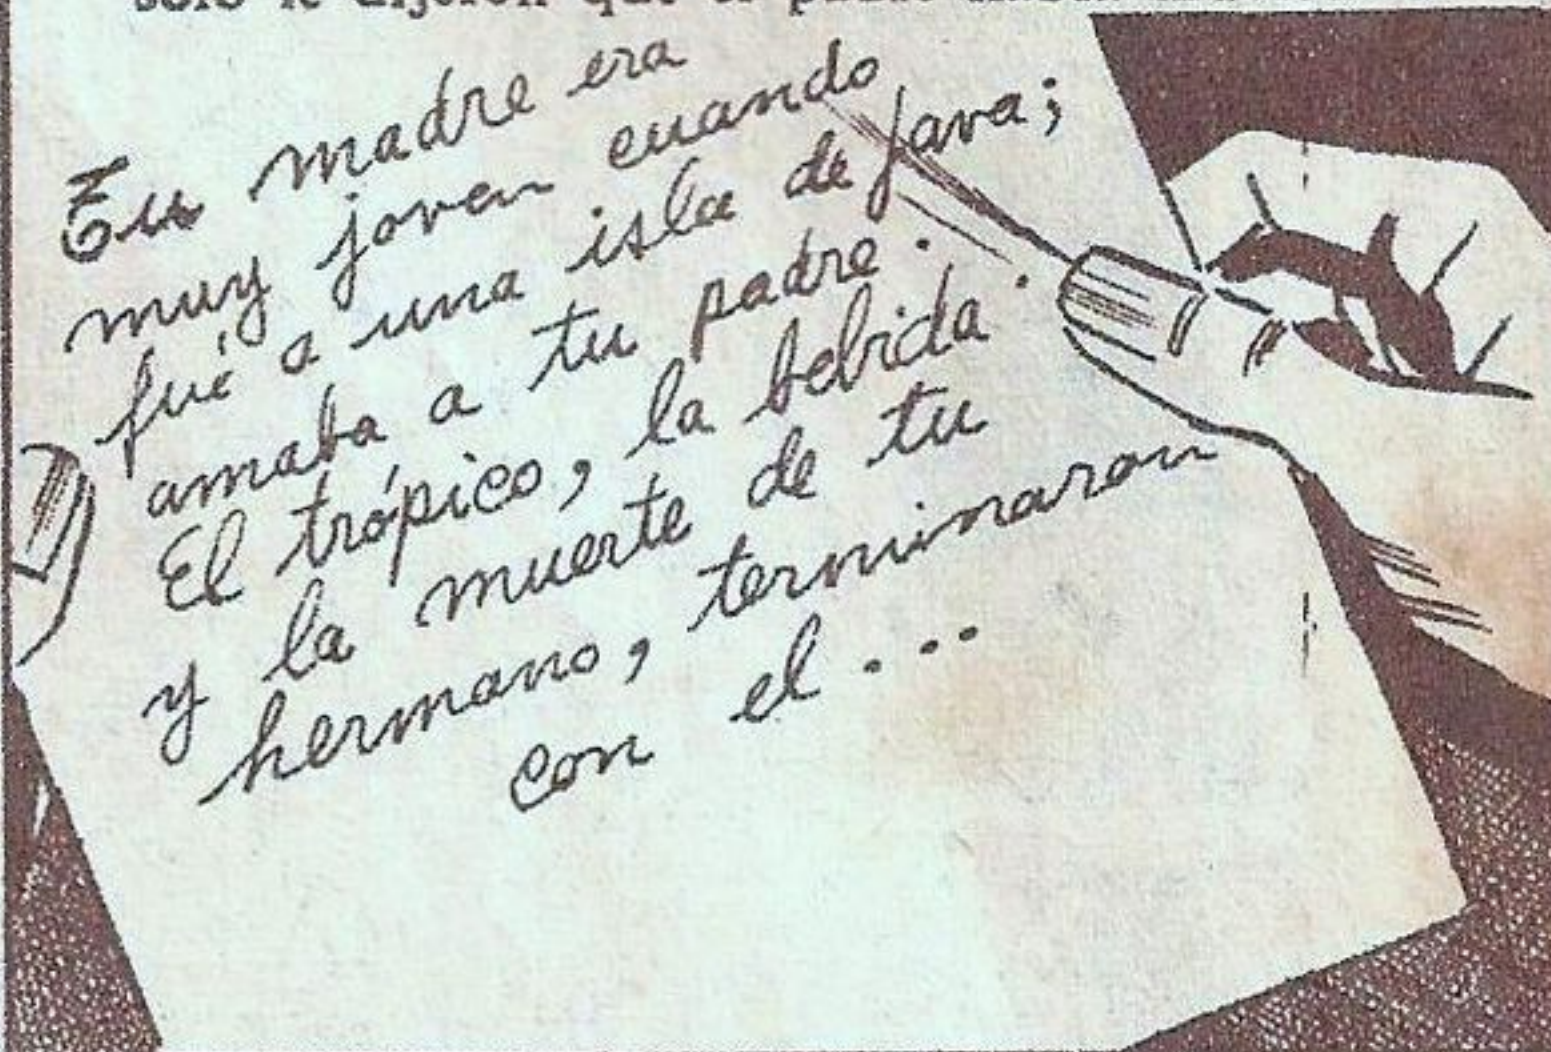 solo le dijeron que el
Tu madre era
muy joven cuando
fué a una isla de Java;
amaba a tu padre.
El trópico, la bebida
y la muerte de tu
hermano, terminaron
con el...